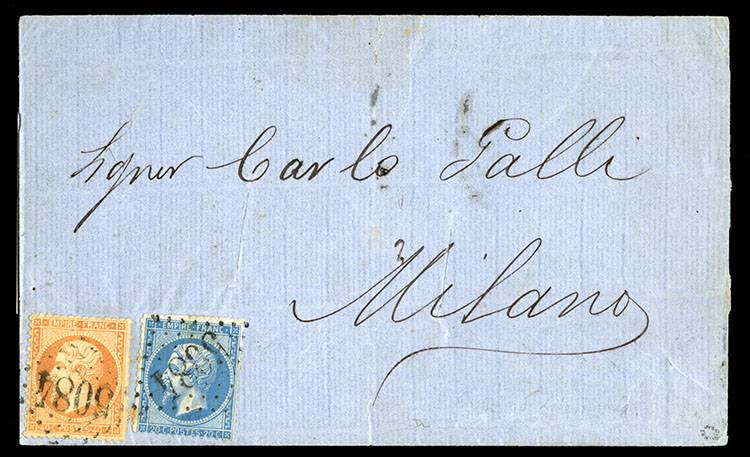 Signor Carlo Galli
Milano
EMPIRE FRANC
EMPIRE FRANC
5084
5084
20·C·POSTES·20·C·